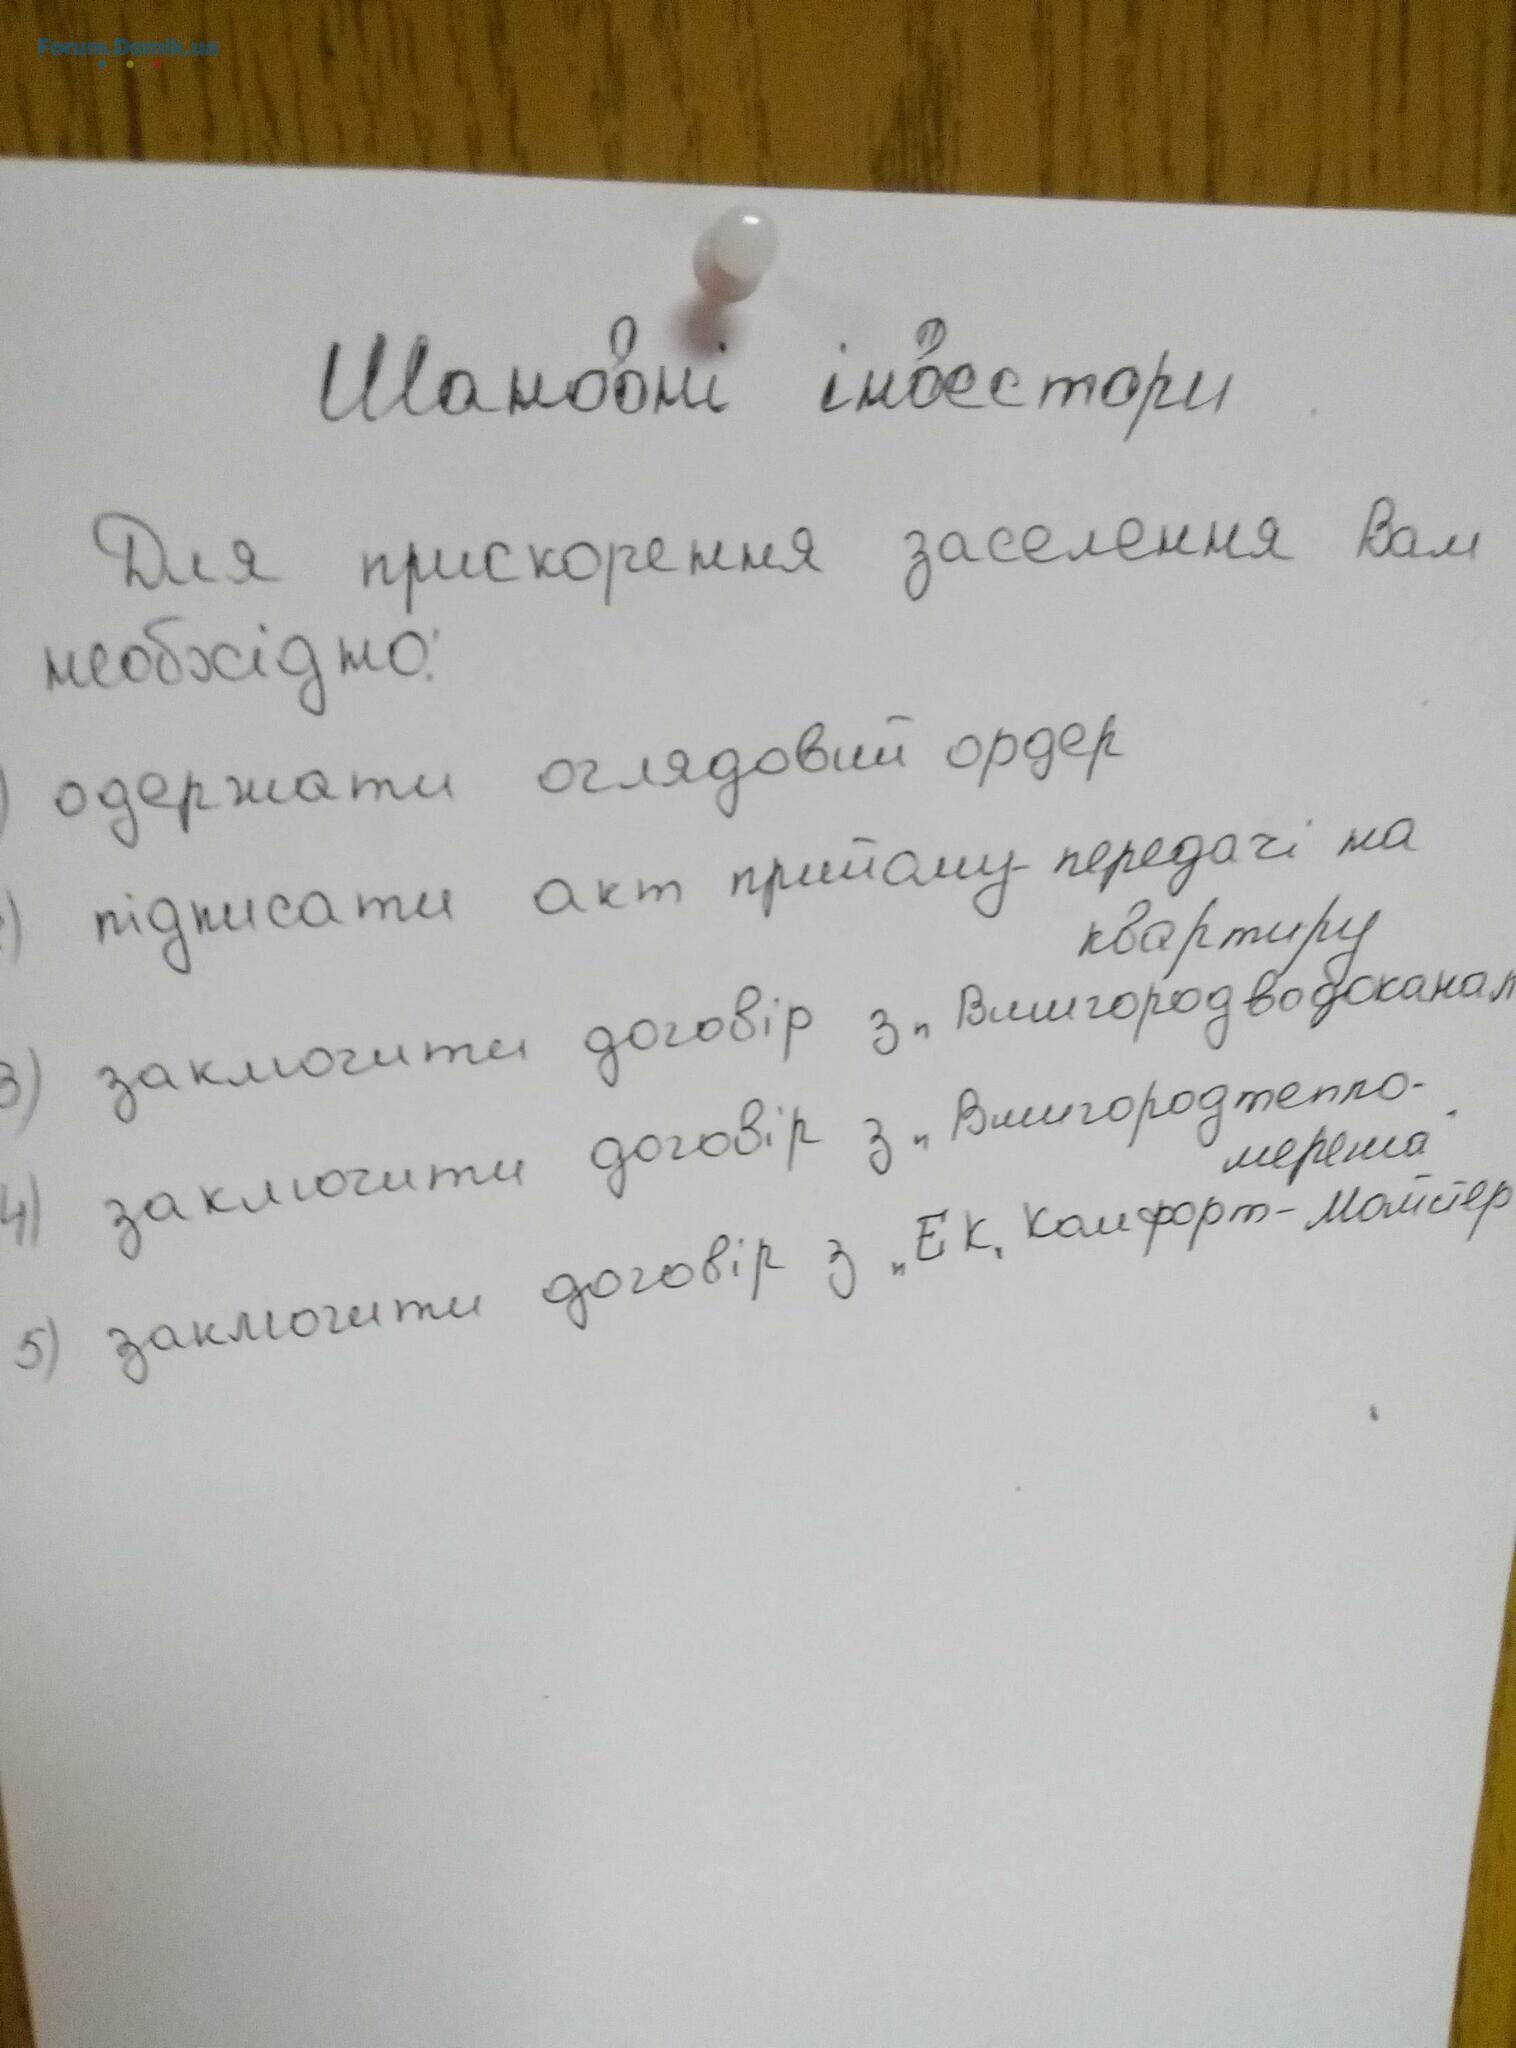 Forum.Domik.ua
Шановні інвестори
Для прискорення заселення Вам
необхідно:
) одержати оглядовий ордер
2) підписати акт прийому-передачі на
квартиру
3) заключити договір з „Вишгородводоканал
4) заключити договір з „Вишгородтепло-
мережа"
5) заключити договір з „ЕК„ Комфорт-Майстер